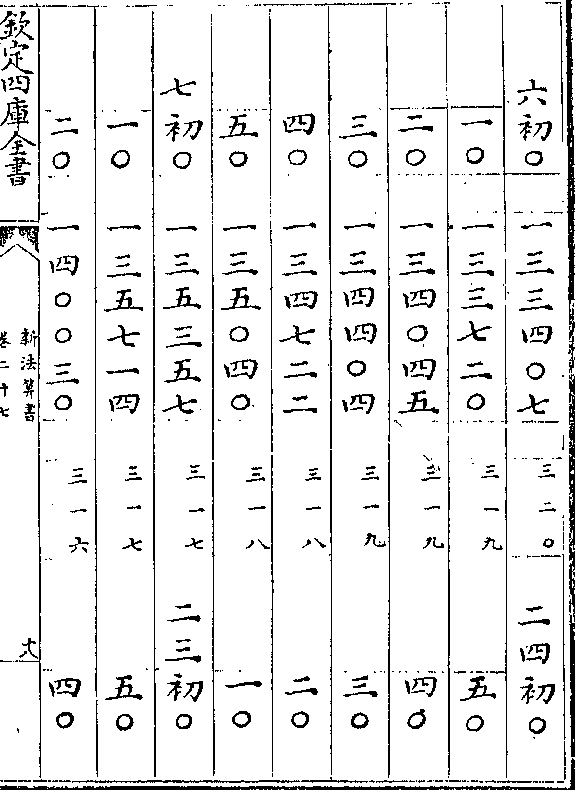 六初〇 一三三四〇七 三二〇 二四初〇
一〇 一三三七二〇 三一九 五〇
二〇 一三四〇四五 三一九 四〇
三〇 一三四四〇四 三一九 三〇
四〇 一三四七二二 三一八 二〇
五〇 一三五〇四〇 三一八 一〇
七初〇 一三五三五七 三一七 二三初〇
一〇 一三五七一四 三一七 五〇
二〇 一四〇〇三〇 三一六 四〇
欽定四庫全書
新法算書
卷二十七
十八